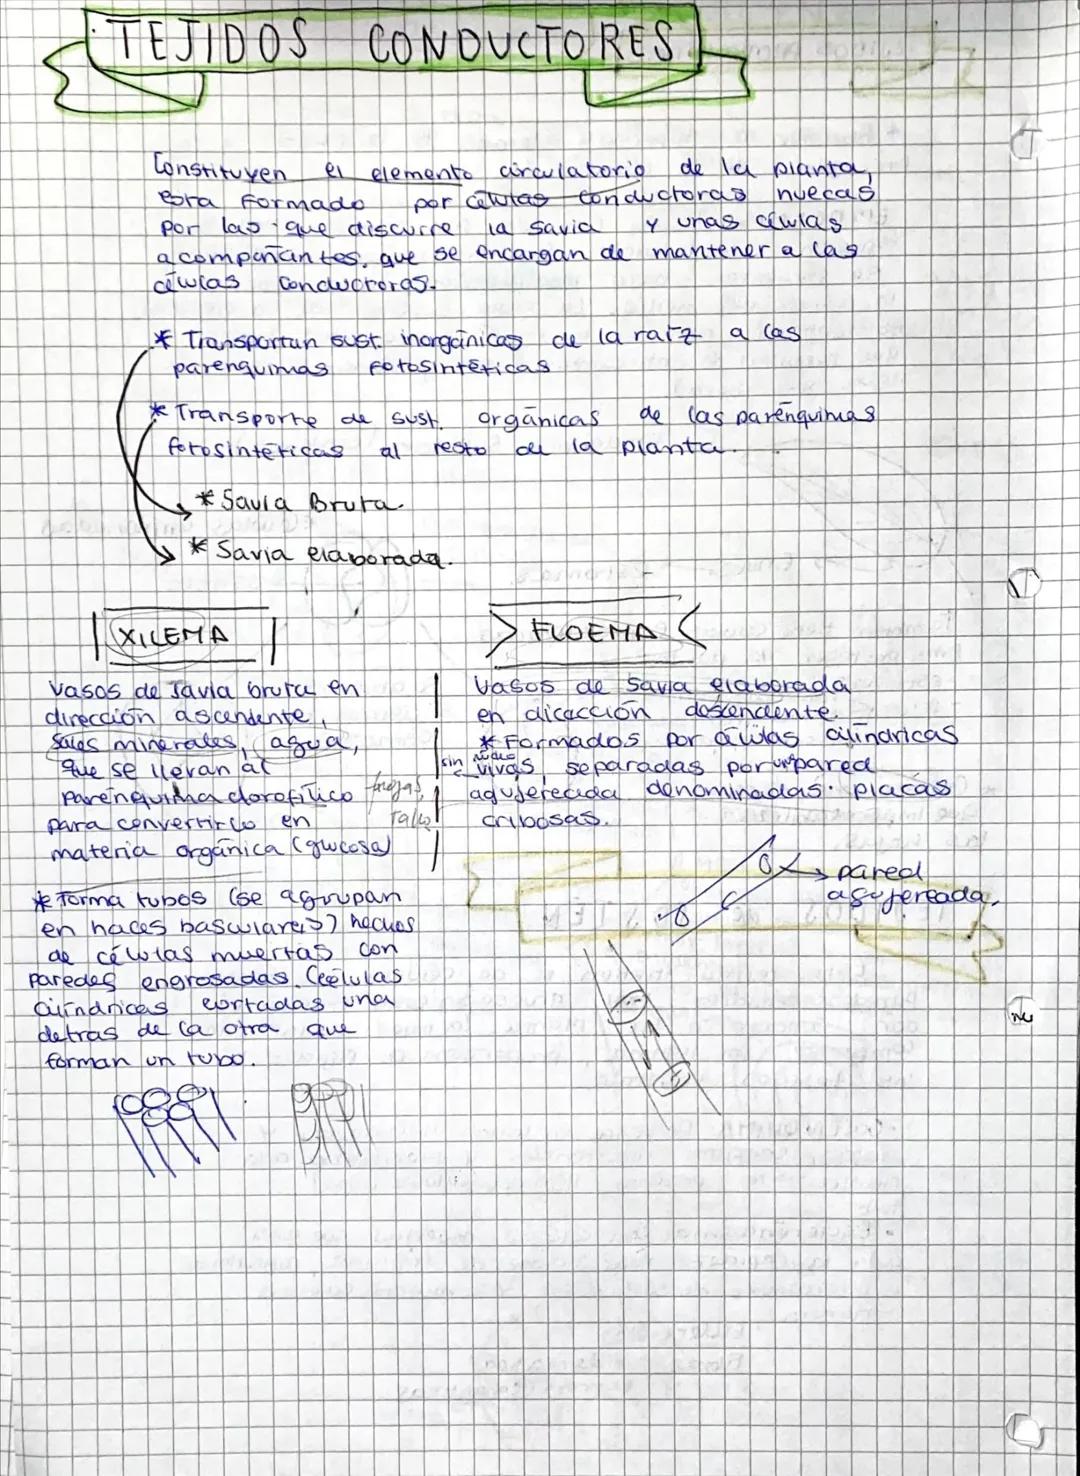 TEJIDOS CONDUCTORES
Constituyen el elemento circulatorio de la planta,
esta formado por células conductoras huecas
por las que discurre la savia y unas células
acompañantes, que se encargan de mantener a las
células conductoras.
* Transportan sust. inorgánicas de la raíz a las
parenquimas fotosintéticas
* Transporte de sust. orgánicas de las parénquimas
fotosintéticas al resto de la planta.
* Savia Bruta.
* Savia elaborada.
XILEMA
Vasos de savia bruta en
dirección ascendente,
sales minerales, agua,
que se llevan al
parénquima clorofílico
hojas,
tallo
para convertirlo en
materia orgánica (glucosa)
* Forma tubos (se agrupan
en haces basculares) hechos
de células muertas con
paredes engrosadas. (células
cilíndricas cortadas una
detras de la otra que
forman un tubo.
FLOEMA
Vasos de savia elaborada
en dicección descendente.
* Formados por células cilíndricas
sin núcleo
vivas, separadas por un pared
agujereada denominadas placas
cribosas.
pared
agujereada.